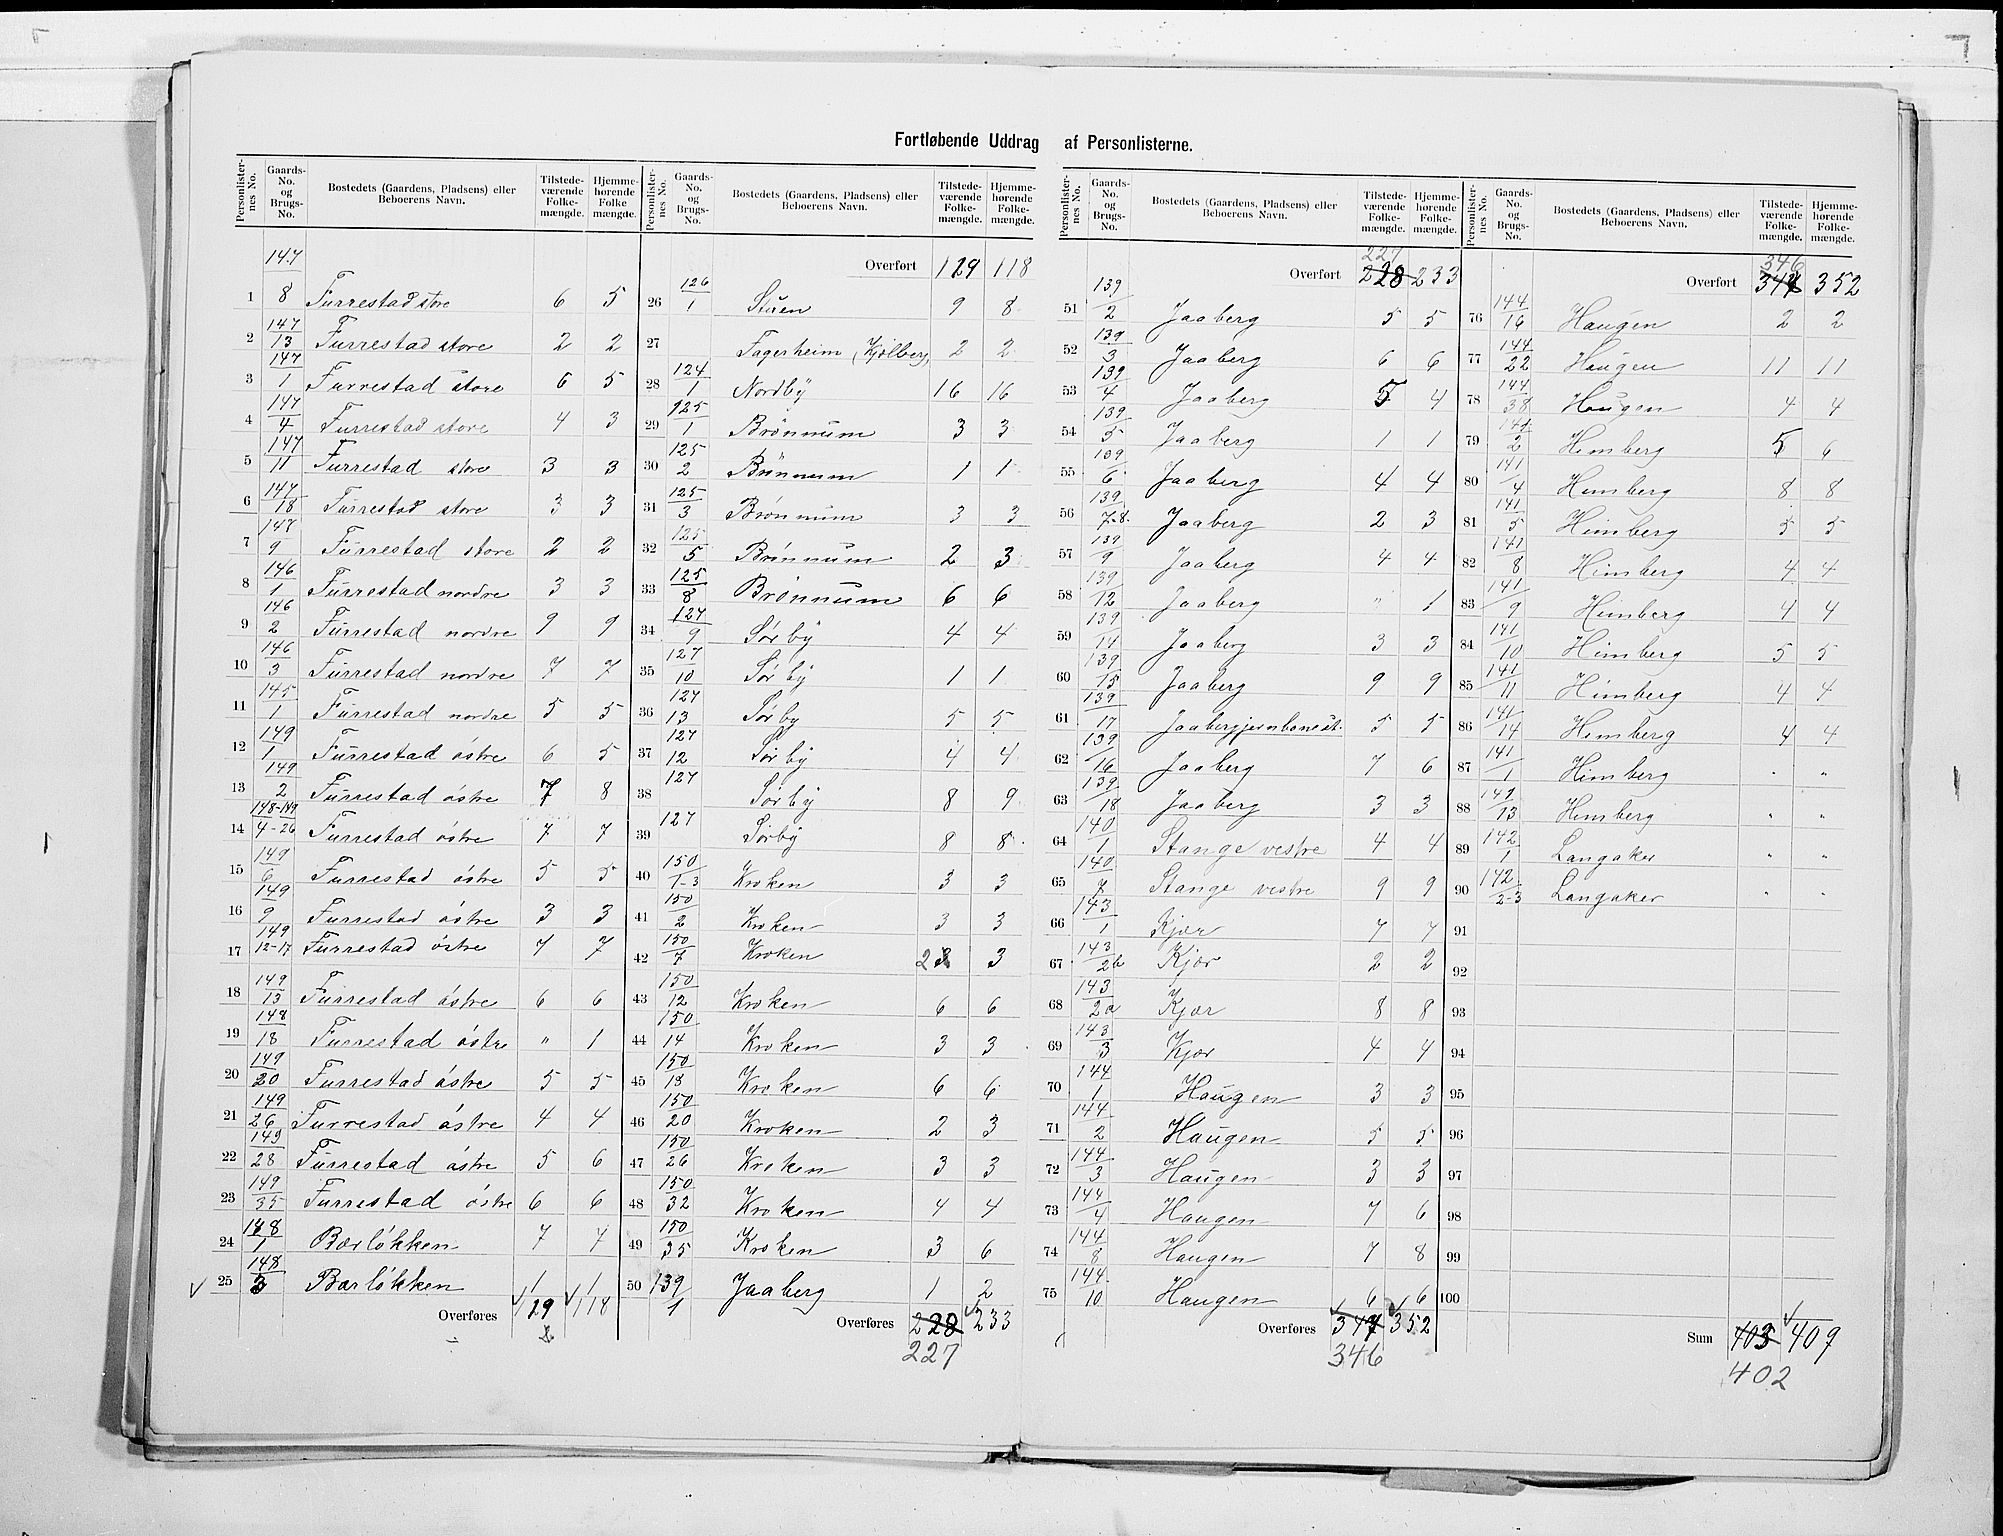 Fortløbende Uddrag af Personlisterne.
Personlisternes No. | Gaards-No. og Brugs-No. | Bostedets (Gaardens, Pladsens) eller Beboerens Navn. | Tilstedeværende Folkemængde. | Hjemmehørende Folkemængde.
1 147/8 Furrestad store 6 5
2 147/13 Furrestad store 2 2
3 147/1 Furrestad store 6 5
4 147/4 Furrestad store 4 3
5 147/11 Furrestad store 3 3
6 147/18 Furrestad store 3 3
7 147/9 Furrestad store 2 2
8 146/1 Furrestad nordre 3 3
9 146/2 Furrestad nordre 9 9
10 146/3 Furrestad nordre 7 7
11 145/1 Furrestad nordre 5 5
12 149/1 Furrestad östre 6 5
13 149/2 Furrestad östre 7 8
14 148-149/4-26 Furrestad östre 7 7
15 149/6 Furrestad östre 5 5
16 149/9 Furrestad östre 3 3
17 149/12-17 Furrestad östre 7 7
18 149/13 Furrestad östre 6 6
19 148/18 Furrestad östre " 1
20 149/20 Furrestad östre 5 5
21 149/26 Furrestad östre 4 4
22 149/28 Furrestad östre 5 6
23 149/35 Furrestad östre 6 6
24 148/1 Bærlökken 7 7
25 148/3 Bærlökken 1 1
Overføres 129 118
Personlisternes No. | Gaards-No. og Brugs-No. | Bostedets (Gaardens, Pladsens) eller Beboerens Navn. | Tilstedeværende Folkemængde. | Hjemmehørende Folkemængde.
Overført 129 118
26 126/1 Stuen 9 8
27 Fagerheim (Kjölberg) 2 2
28 124/1 Nordby 16 16
29 125/1 Brönnum 3 3
30 125/2 Brönnum 1 1
31 125/3 Brönnum 3 3
32 125/5 Brönnum 2 3
33 125/8 Brönnum 6 6
34 127/9 Sørby 4 4
35 127/10 Sørby 1 1
36 127/13 Sørby 5 5
37 127/12 Sørby 4 4
38 127 Sørby 8 9
39 127 Sørby 8 8
40 150/1-3 Kroken 3 3
41 150/2 Kroken 3 3
42 150/7 Kroken 2 3
43 150/12 Kroken 6 6
44 150/14 Kroken 3 3
45 150/18 Kroken 6 6
46 150/20 Kroken 2 3
47 150/26 Kroken 3 3
48 150/32 Kroken 4 4
49 150/35 Kroken 3 6
50 139/1 Jaaberg 1 2
Overføres 228 233
227
Personlisternes No. | Gaards-No. og Brugs-No. | Bostedets (Gaardens, Pladsens) eller Beboerens Navn. | Tilstedeværende Folkemængde. | Hjemmehørende Folkemængde.
227
Overført 228 233
51 139/2 Jaaberg 5 5
52 139/3 Jaaberg 6 6
53 139/4 Jaaberg 5 4
54 139/5 Jaaberg 1 1
55 139/6 Jaaberg 4 4
56 139/7-8 Jaaberg 2 3
57 139/9 Jaaberg 4 4
58 139/12 Jaaberg " 1
59 139/14 Jaaberg 3 3
60 139/15 Jaaberg 9 9
61 139/17 Jaabergjernbanest. 5 5
62 139/16 Jaaberg 7 6
63 139/18 Jaaberg 3 3
64 140/1 Stange vestre 4 4
65 140/7 Stange vestre 9 9
66 143/1 Kjær 7 7
67 143/2b Kjær 2 2
68 143/2a Kjær 8 8
69 143/3 Kjær 4 4
70 144/1 Haugen 3 3
71 144/2 Haugen 5 5
72 144/3 Haugen 3 3
73 144/4 Haugen 7 6
74 144/8 Haugen 7 8
75 144/10 Haugen 6 6
Overføres 347 352
346
Personlisternes No. | Gaards-No. og Brugs-No. | Bostedets (Gaardens, Pladsens) eller Beboerens Navn. | Tilstedeværende Folkemængde. | Hjemmehørende Folkemængde.
346
Overført 347 352
76 144/16 Haugen 2 2
77 144/22 Haugen 11 11
78 144/38 Haugen 4 4
79 141/2 Himberg 5 6
80 141/4 Himberg 8 8
81 141/5 Himberg 5 5
82 141/8 Himberg 4 4
83 141/9 Himberg 4 4
84 141/10 Himberg 5 5
85 141/11 Himberg 4 4
86 141/14 Himberg 4 4
87 141/1 Himberg " "
88 141/13 Himberg " "
89 142/1 Langaker " "
90 142/2-3 Langaker " "
91
92
93
94
95
96
97
98
99
100
Sum 403 409
402